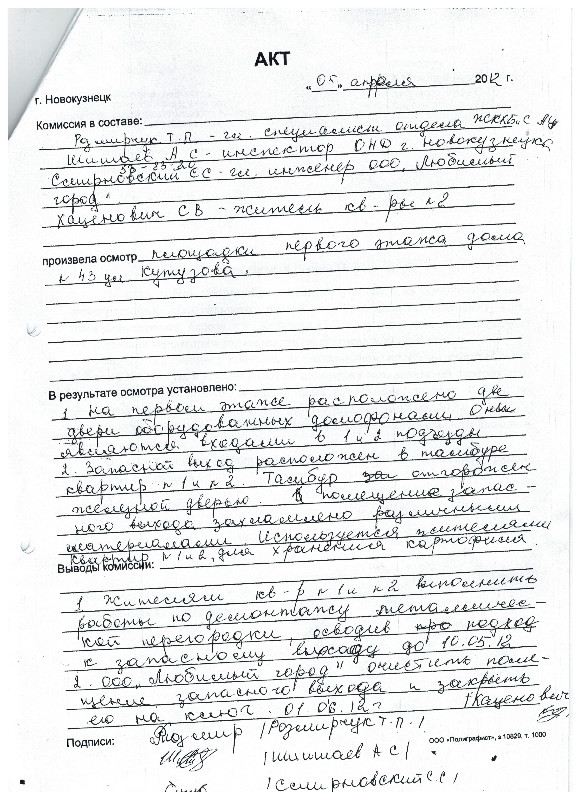 АКТ
„05„ апреля 2012 г.
г. Новокузнецк
Комиссия в составе:
Розмирчук Т.П - гл. специалист отдела ЖККБ и С
Шишаев А С - инспектор ОНД г. Новокузнецка
Семирновский СС - гл. инженер ООО „Любимый
город".
Каценович СВ - житель кв-ры №2
произвела осмотр площадки первого этажа дома
№ 43 ул Кутузова.
В результате осмотра установлено:
1. На первом этаже расположено две
двери оборудованных домофонами. Они
являются входами в 1 и 2 подъезды
2. Запасной выход расположен в тамбуре
квартир №1 и №2. Тамбур отгорожен
железной дверью. помещение запас-
ного выхода захламлено различными
материалами. Используется жителями
квартир №1 и 2 для хранения картофеля.
Выводы комиссии:
1 Жителям кв-р №1 и №2 выполнить
работы по демонтажу металличес-
кой перегородки, освободив подход
к запасному выходу до 10.05.12
2. ООО „Любимый город" очистить поме-
щение запасного выхода и закрыть
его на ключ. 01 06.12 г
/Каценович
Подписи: Розмир /Розмирчук Т.П./
ООО «Полиграфист», з 10829. т. 1000
/Шишаев А С/
/Семирновский С.С/